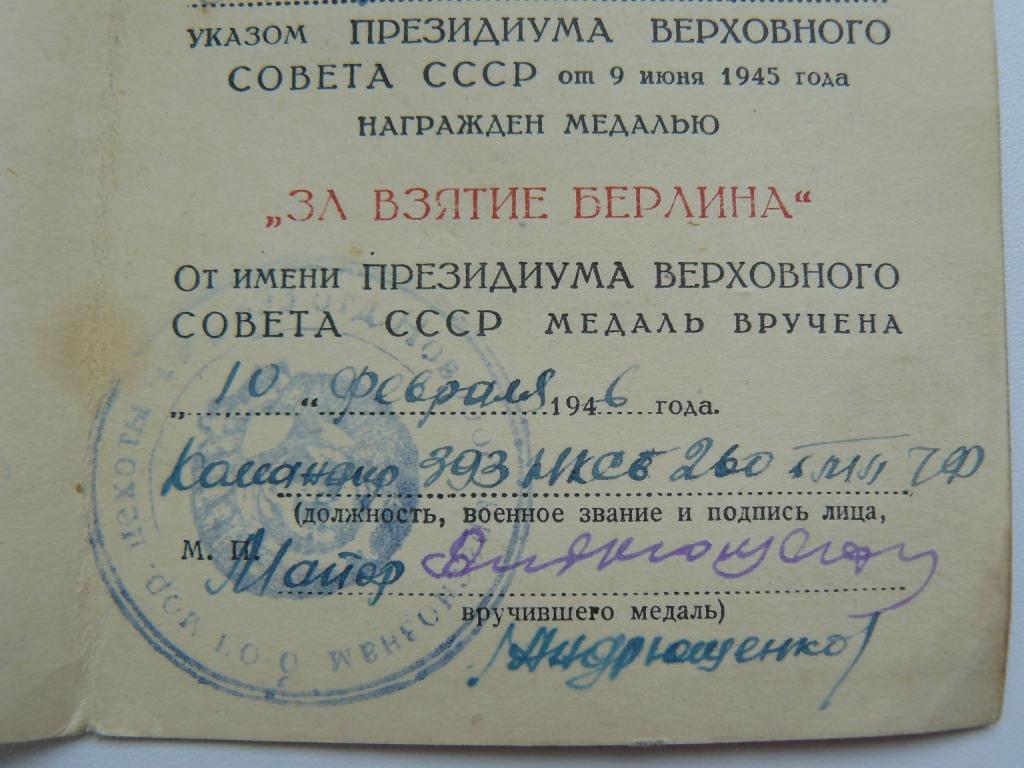 УКАЗОМ ПРЕЗИДИУМА ВЕРХОВНОГО
СОВЕТА СССР от 9 июня 1945 года
НАГРАЖДЕН МЕДАЛЬЮ
„ЗА ВЗЯТИЕ БЕРЛИНА“
От имени ПРЕЗИДИУМА ВЕРХОВНОГО
СОВЕТА СССР МЕДАЛЬ ВРУЧЕНА
„10“ февраля 1946 года.
Командир 393 260
(должность, военное звание и подпись лица,
М. П. Майор
вручившего медаль)
/Андрющенко/
пехоты
мор.
б-он